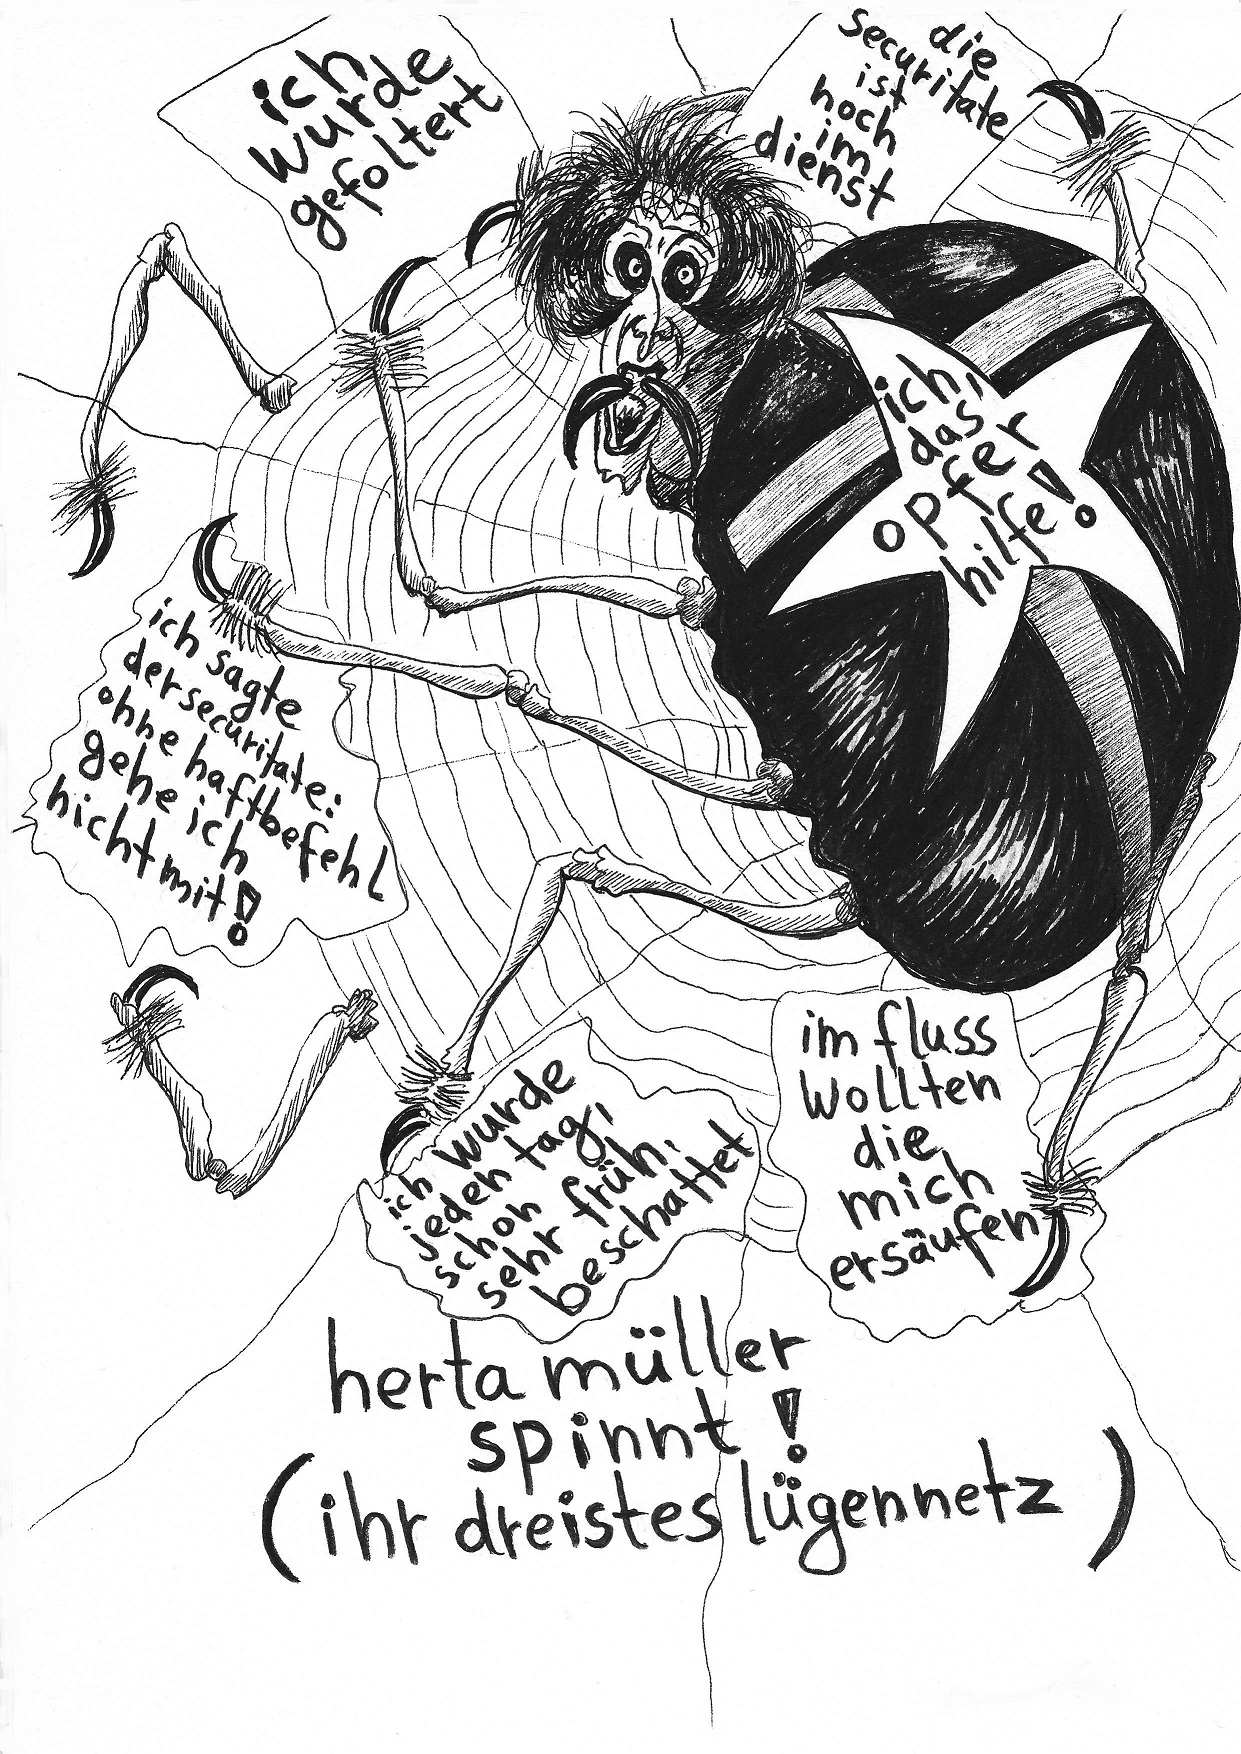 ich
wurde
gefoltert
die
securitate
ist
noch
im
dienst
ich,
das
opfer
hilfe!
ich sagte
der securitate:
ohne haftbefehl
gehe ich
nicht mit!
ich wurde
jeden tag,
schon
sehr früh,
beschattet
im fluss
wollten
die
mich
ersäufen
herta müller
spinnt!
(ihr dreistes lügennetz)